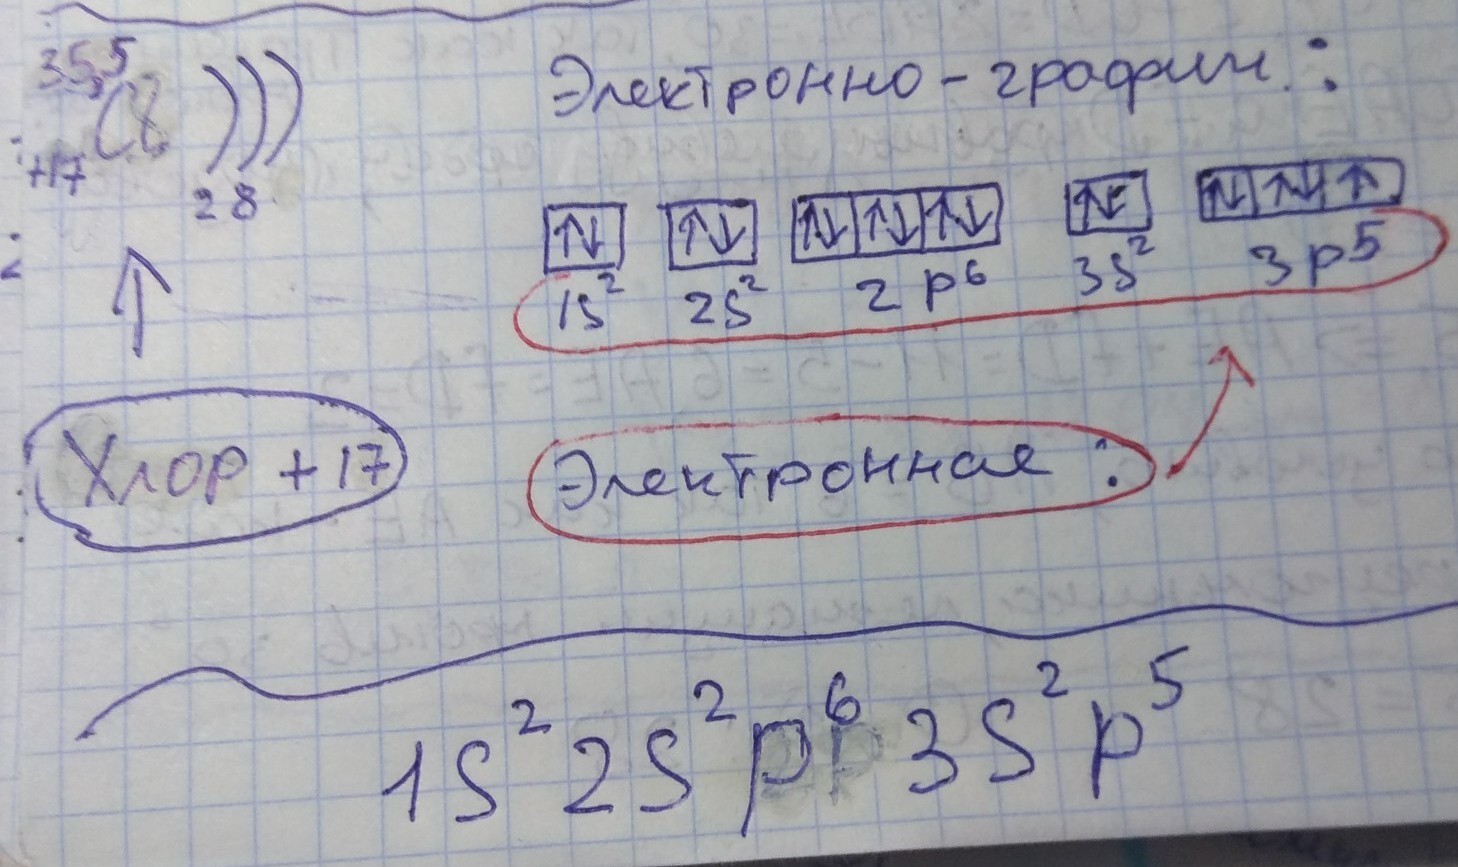 35,5
+17 ) ) )
2 8
Электронно-графич. :
↑↓ ↑↓ ↑↓ ↑↓ ↑↓ ↑↓ ↑↓ ↑↓ ↑
1s² 2s² 2p⁶ 3s² 3p⁵
Хлор +17
Электронная :
1s² 2s² p⁶ 3s² p⁵